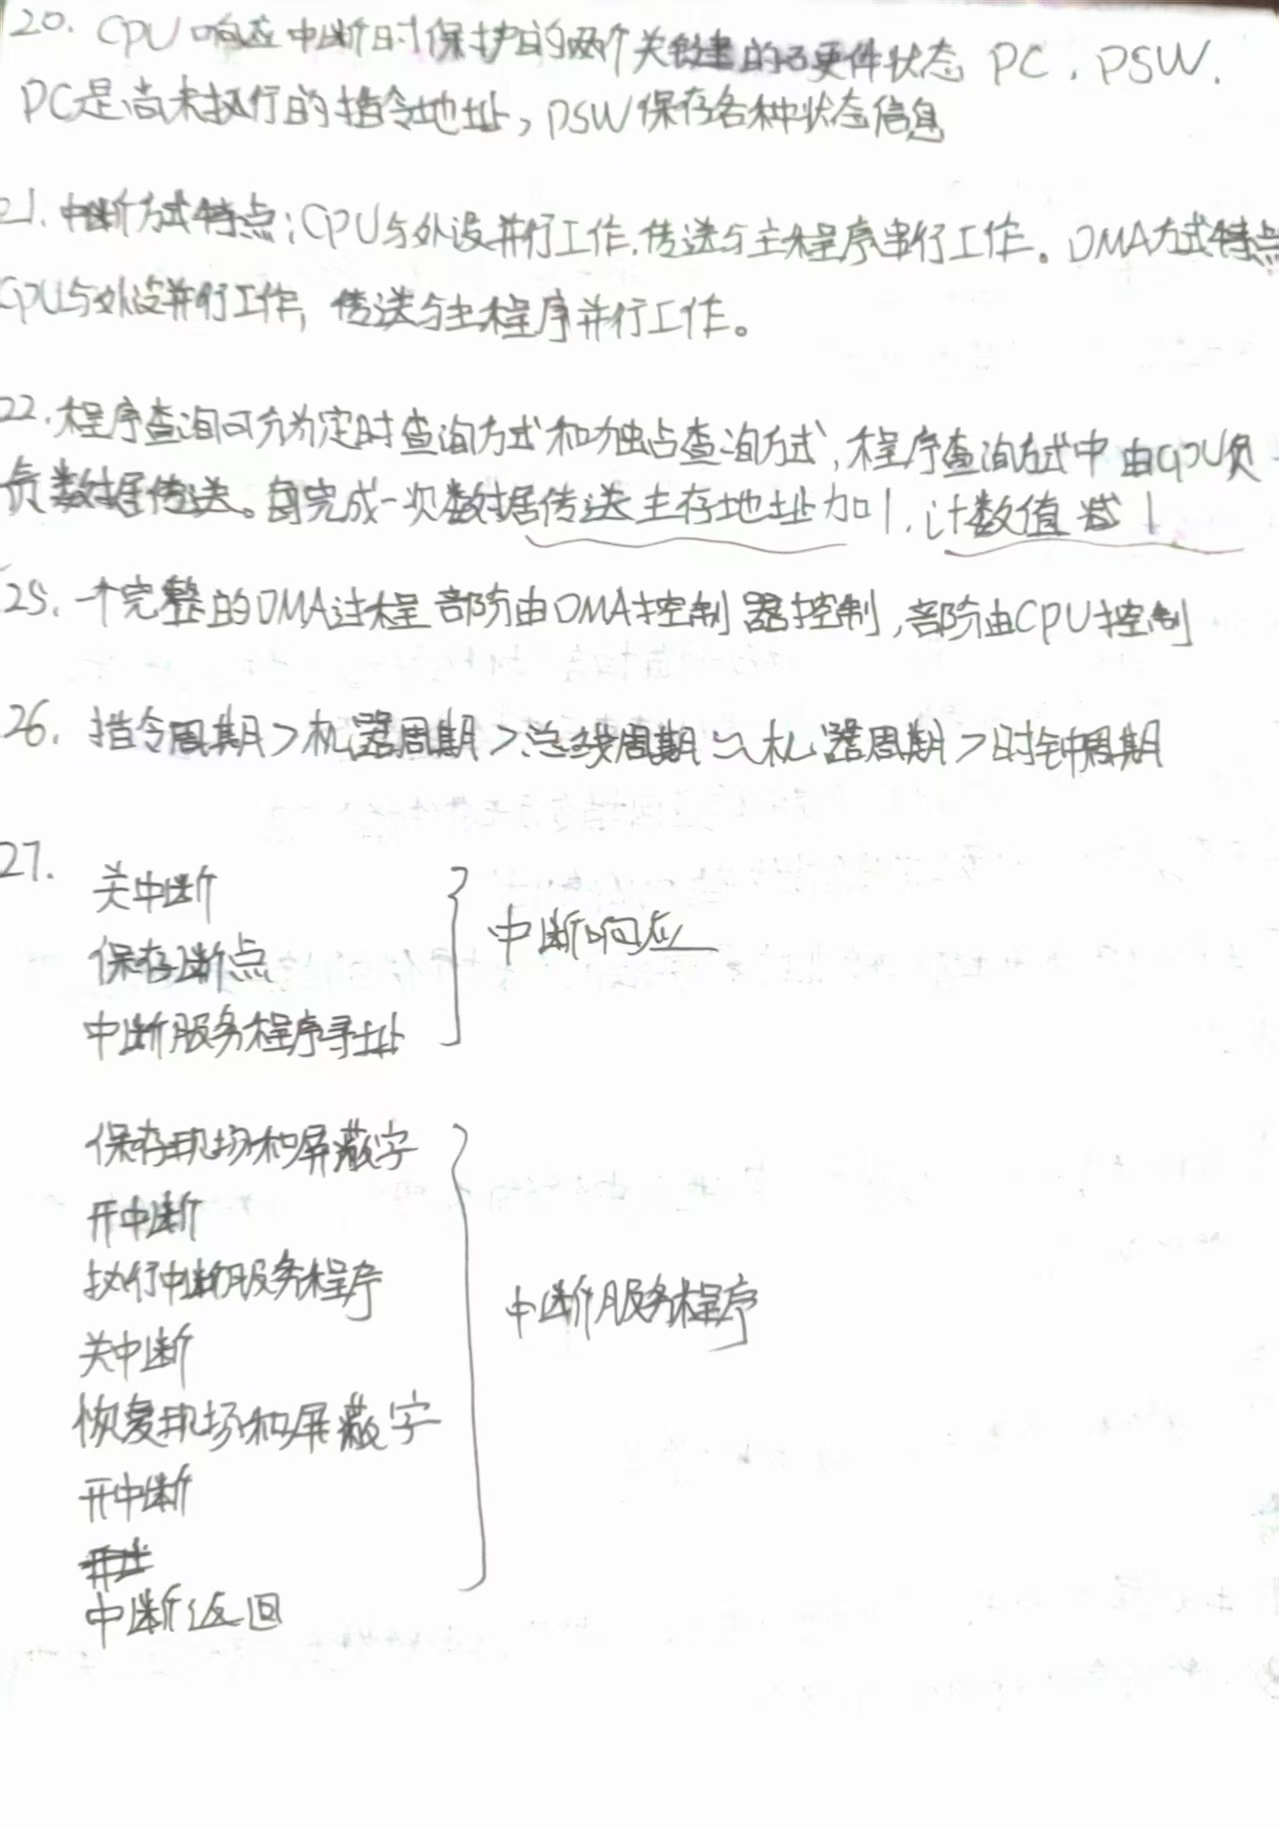 20. CPU响应中断时保护的两个关键的硬件状态 PC, PSW.
PC是尚未执行的指令地址, PSW保存各种状态信息
21. 中断方式特点: CPU与外设并行工作, 传送与主程序串行工作。DMA方式特点
CPU与外设并行工作, 传送与主程序并行工作。
22. 程序查询可分为定时查询方式和独占查询方式, 程序查询方式中由CPU负
责数据传送。每完成一次数据传送主存地址加1, 计数值减1
25. 一个完整的DMA过程部分由DMA控制器控制, 部分由CPU控制
26. 指令周期>机器周期>总线周期≈机器周期>时钟周期
27.
关中断
保存断点
中断服务程序寻址
中断响应
保存现场和屏蔽字
开中断
执行中断服务程序
关中断
恢复现场和屏蔽字
开中断
中断返回
中断服务程序